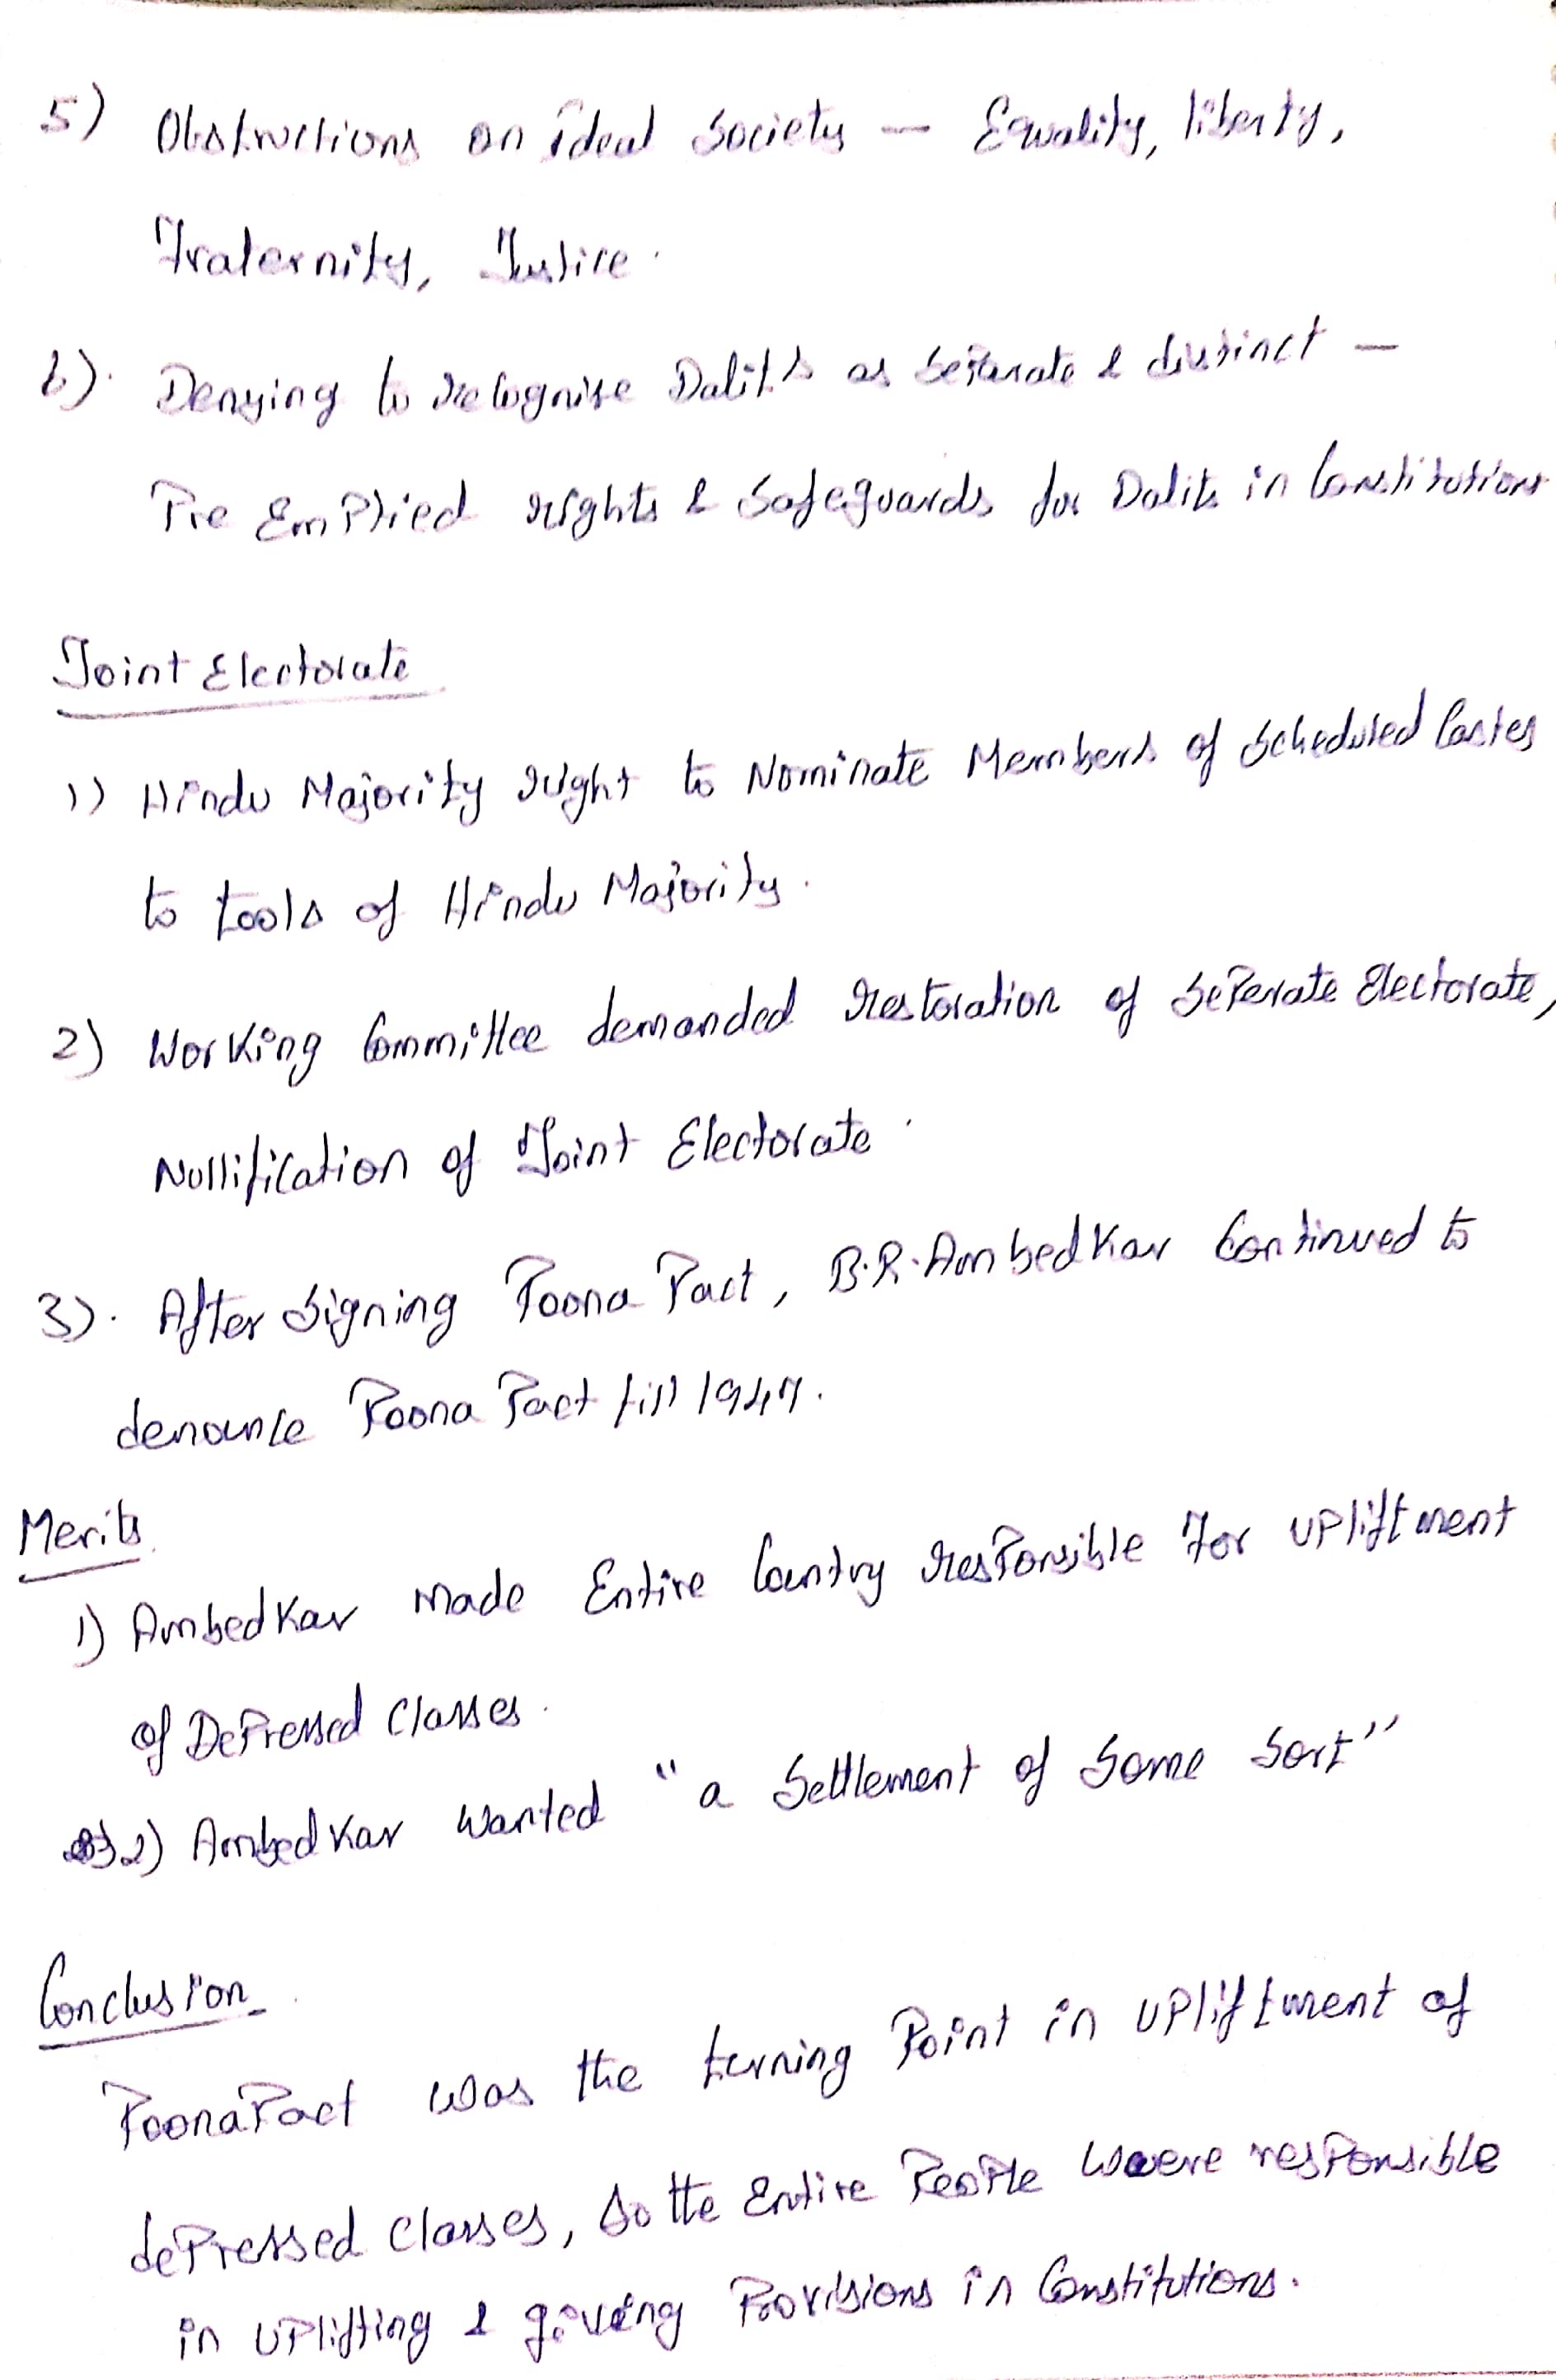 5) Obstructions on ideal Society — Equality, liberty,
Fraternity, Justice.
6). Denying to recognise Dalits as separate & distinct —
Pre Emptied rights & Safeguards for Dalits in Constitutions
Joint Electorate
1) Hindu Majority right to Nominate Members of Scheduled Castes
to tools of Hindu Majority.
2) Working Committee demanded restoration of Seperate Electorate,
Nullification of Joint Electorate.
3). After signing Poona Pact, B.R. Ambedkar Continued to
denounce Poona Pact till 1947.
Merits
1) Ambedkar Made Entire Country responsible For upliftment
of Depressed classes.
2) Ambedkar wanted "a Settlement of Some Sort"
Conclusion
Poona Pact was the turning Point in upliftment of
depressed classes, So the Entire People were responsible
in uplifting & giving Provisions in Constitutions.